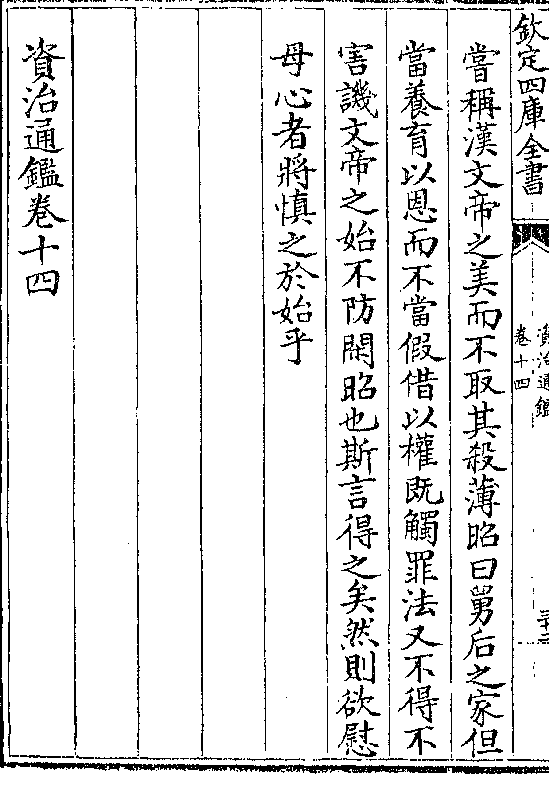 欽定四庫全書
資治通鑑
卷十四
嘗稱漢文帝之美而不取其殺薄昭曰舅后之家但
當養育以恩而不當假借以權既觸罪法又不得不
害譏文帝之始不防閑昭也斯言得之矣然則欲慰
母心者將慎之於始乎
資治通鑑卷十四